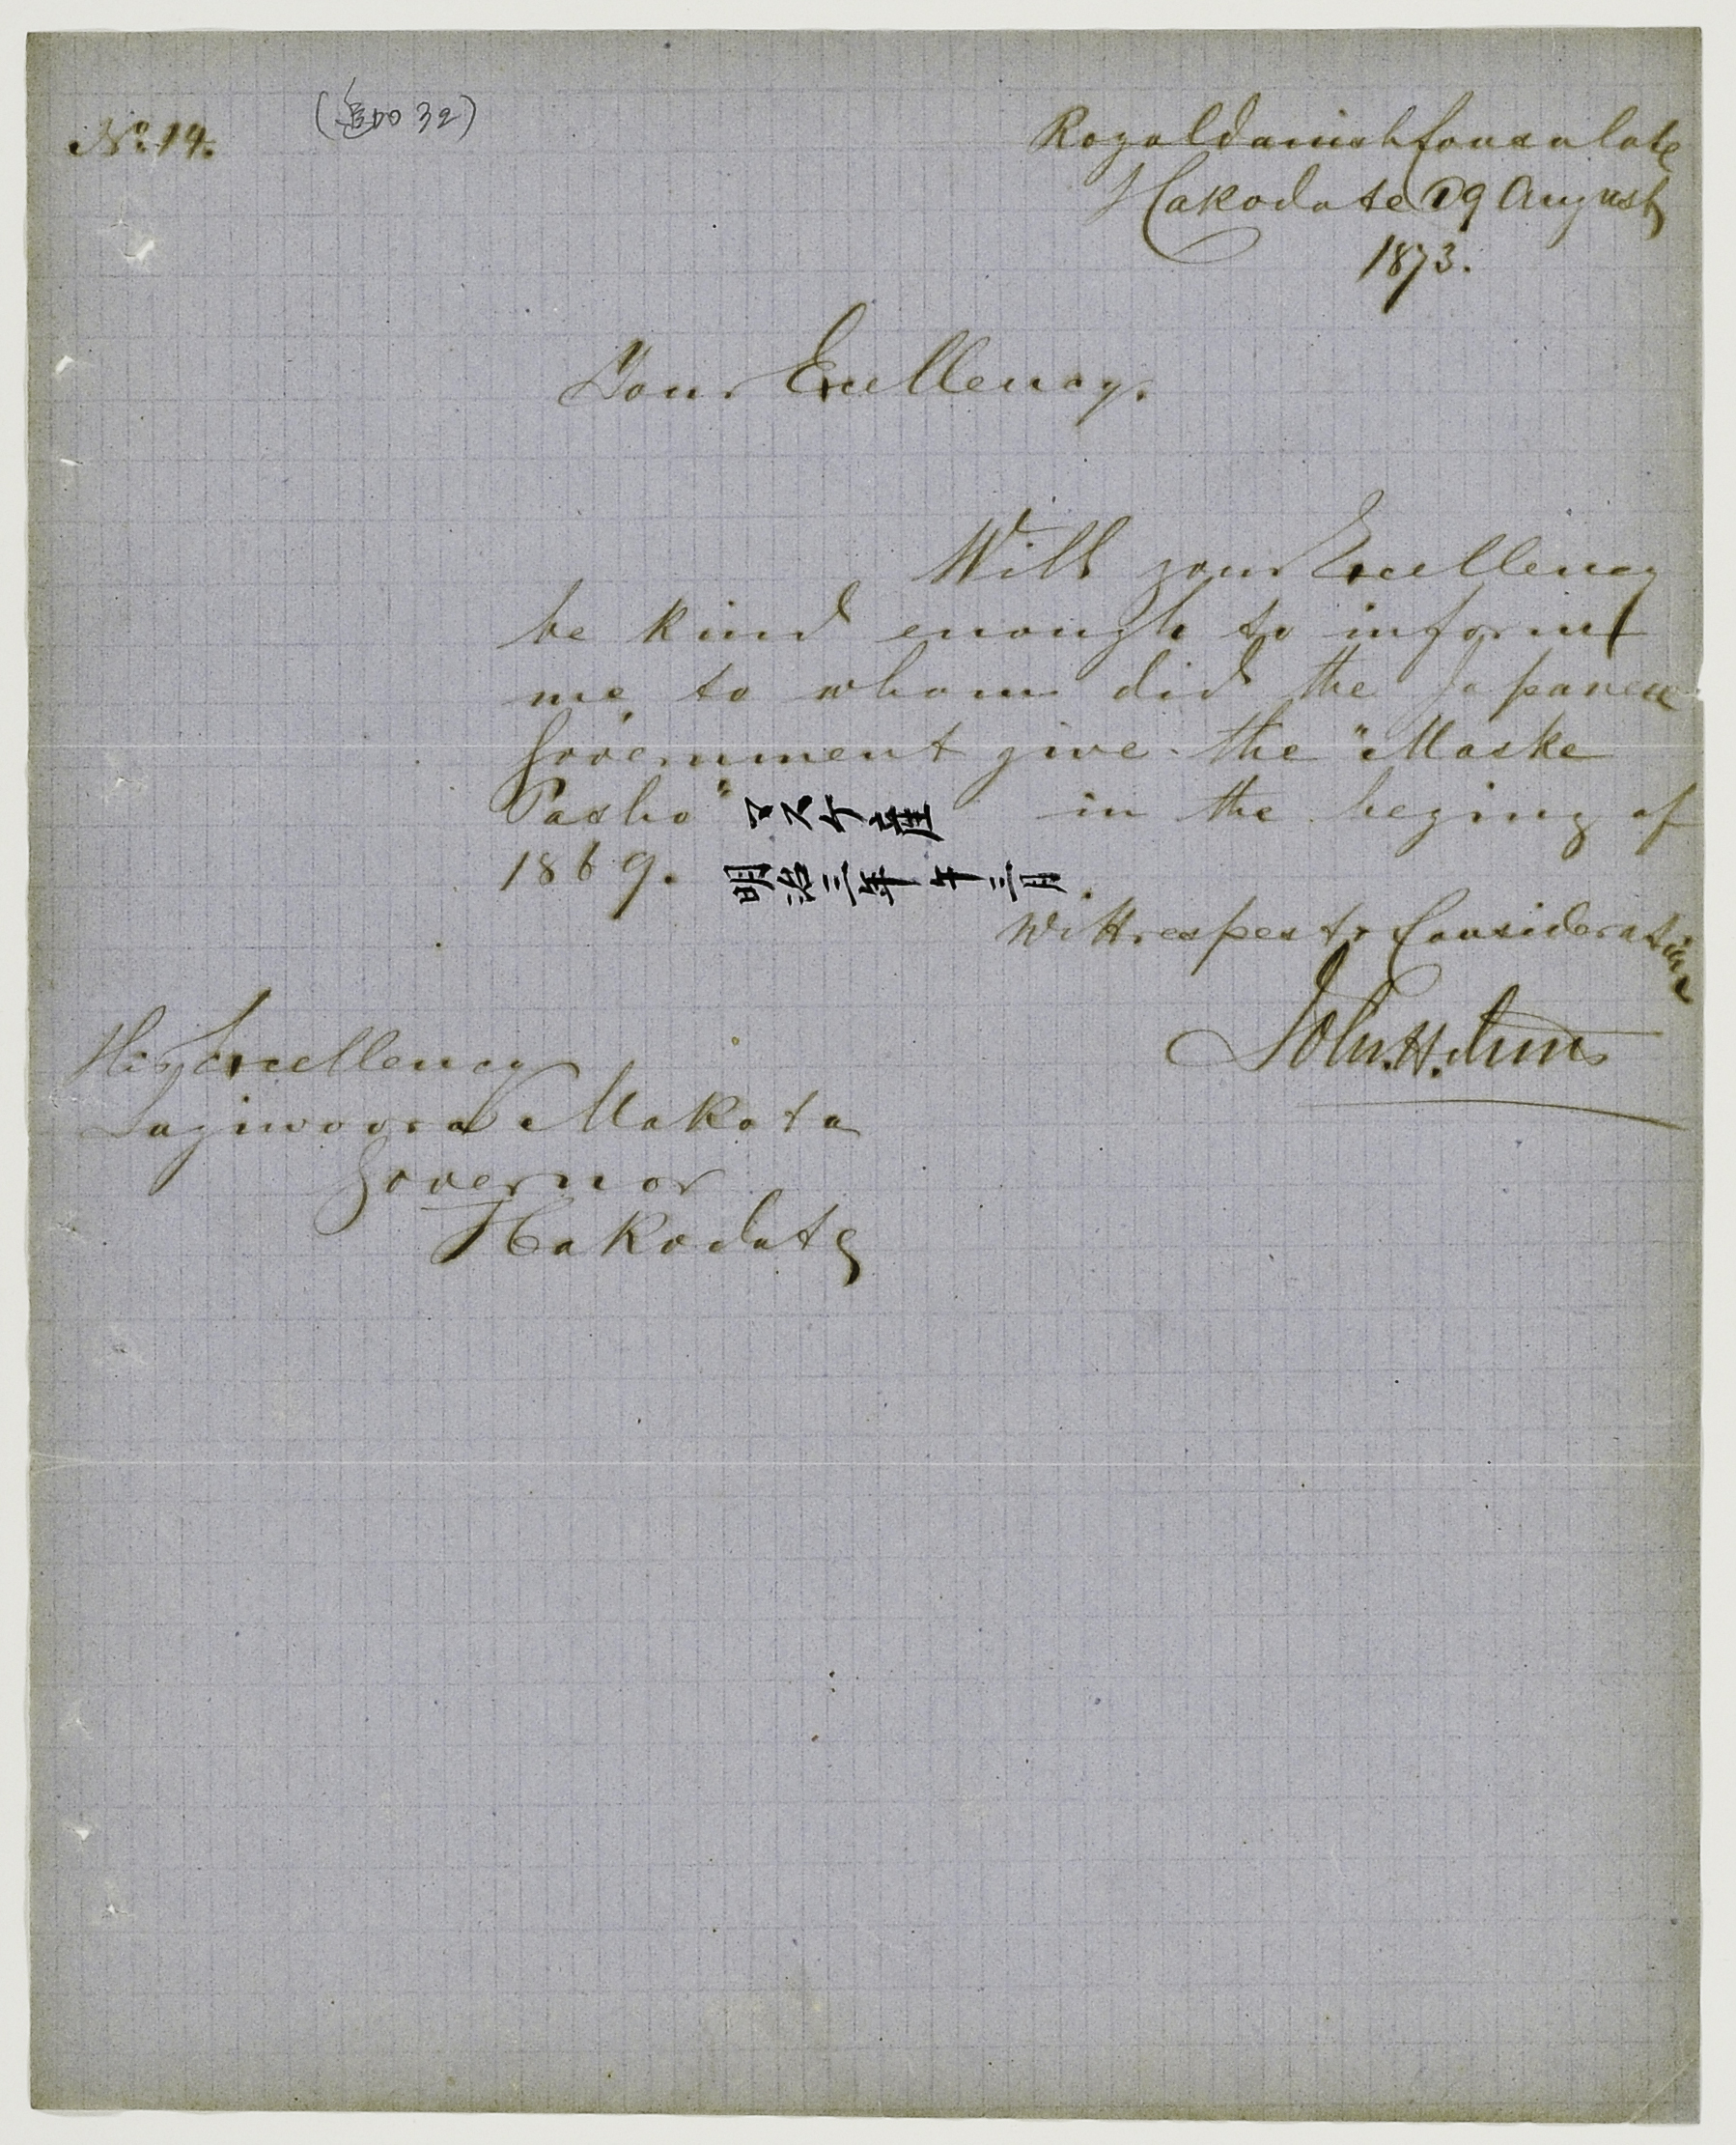 No. 14.
(追加 32)
Royal danish Consulate
Hakodate 19 August
1873.
Your Excellency.
Will your Excellency
be kind enough to inform
me to whom did the Japanese
Government give the "Maske
Pasho" マスケ in the begining of
1869. 明治三年午三月.
With respect & Consideration
John. H. Duus
His Excellency
Sugiwoora Makota
Governor
Hakodate